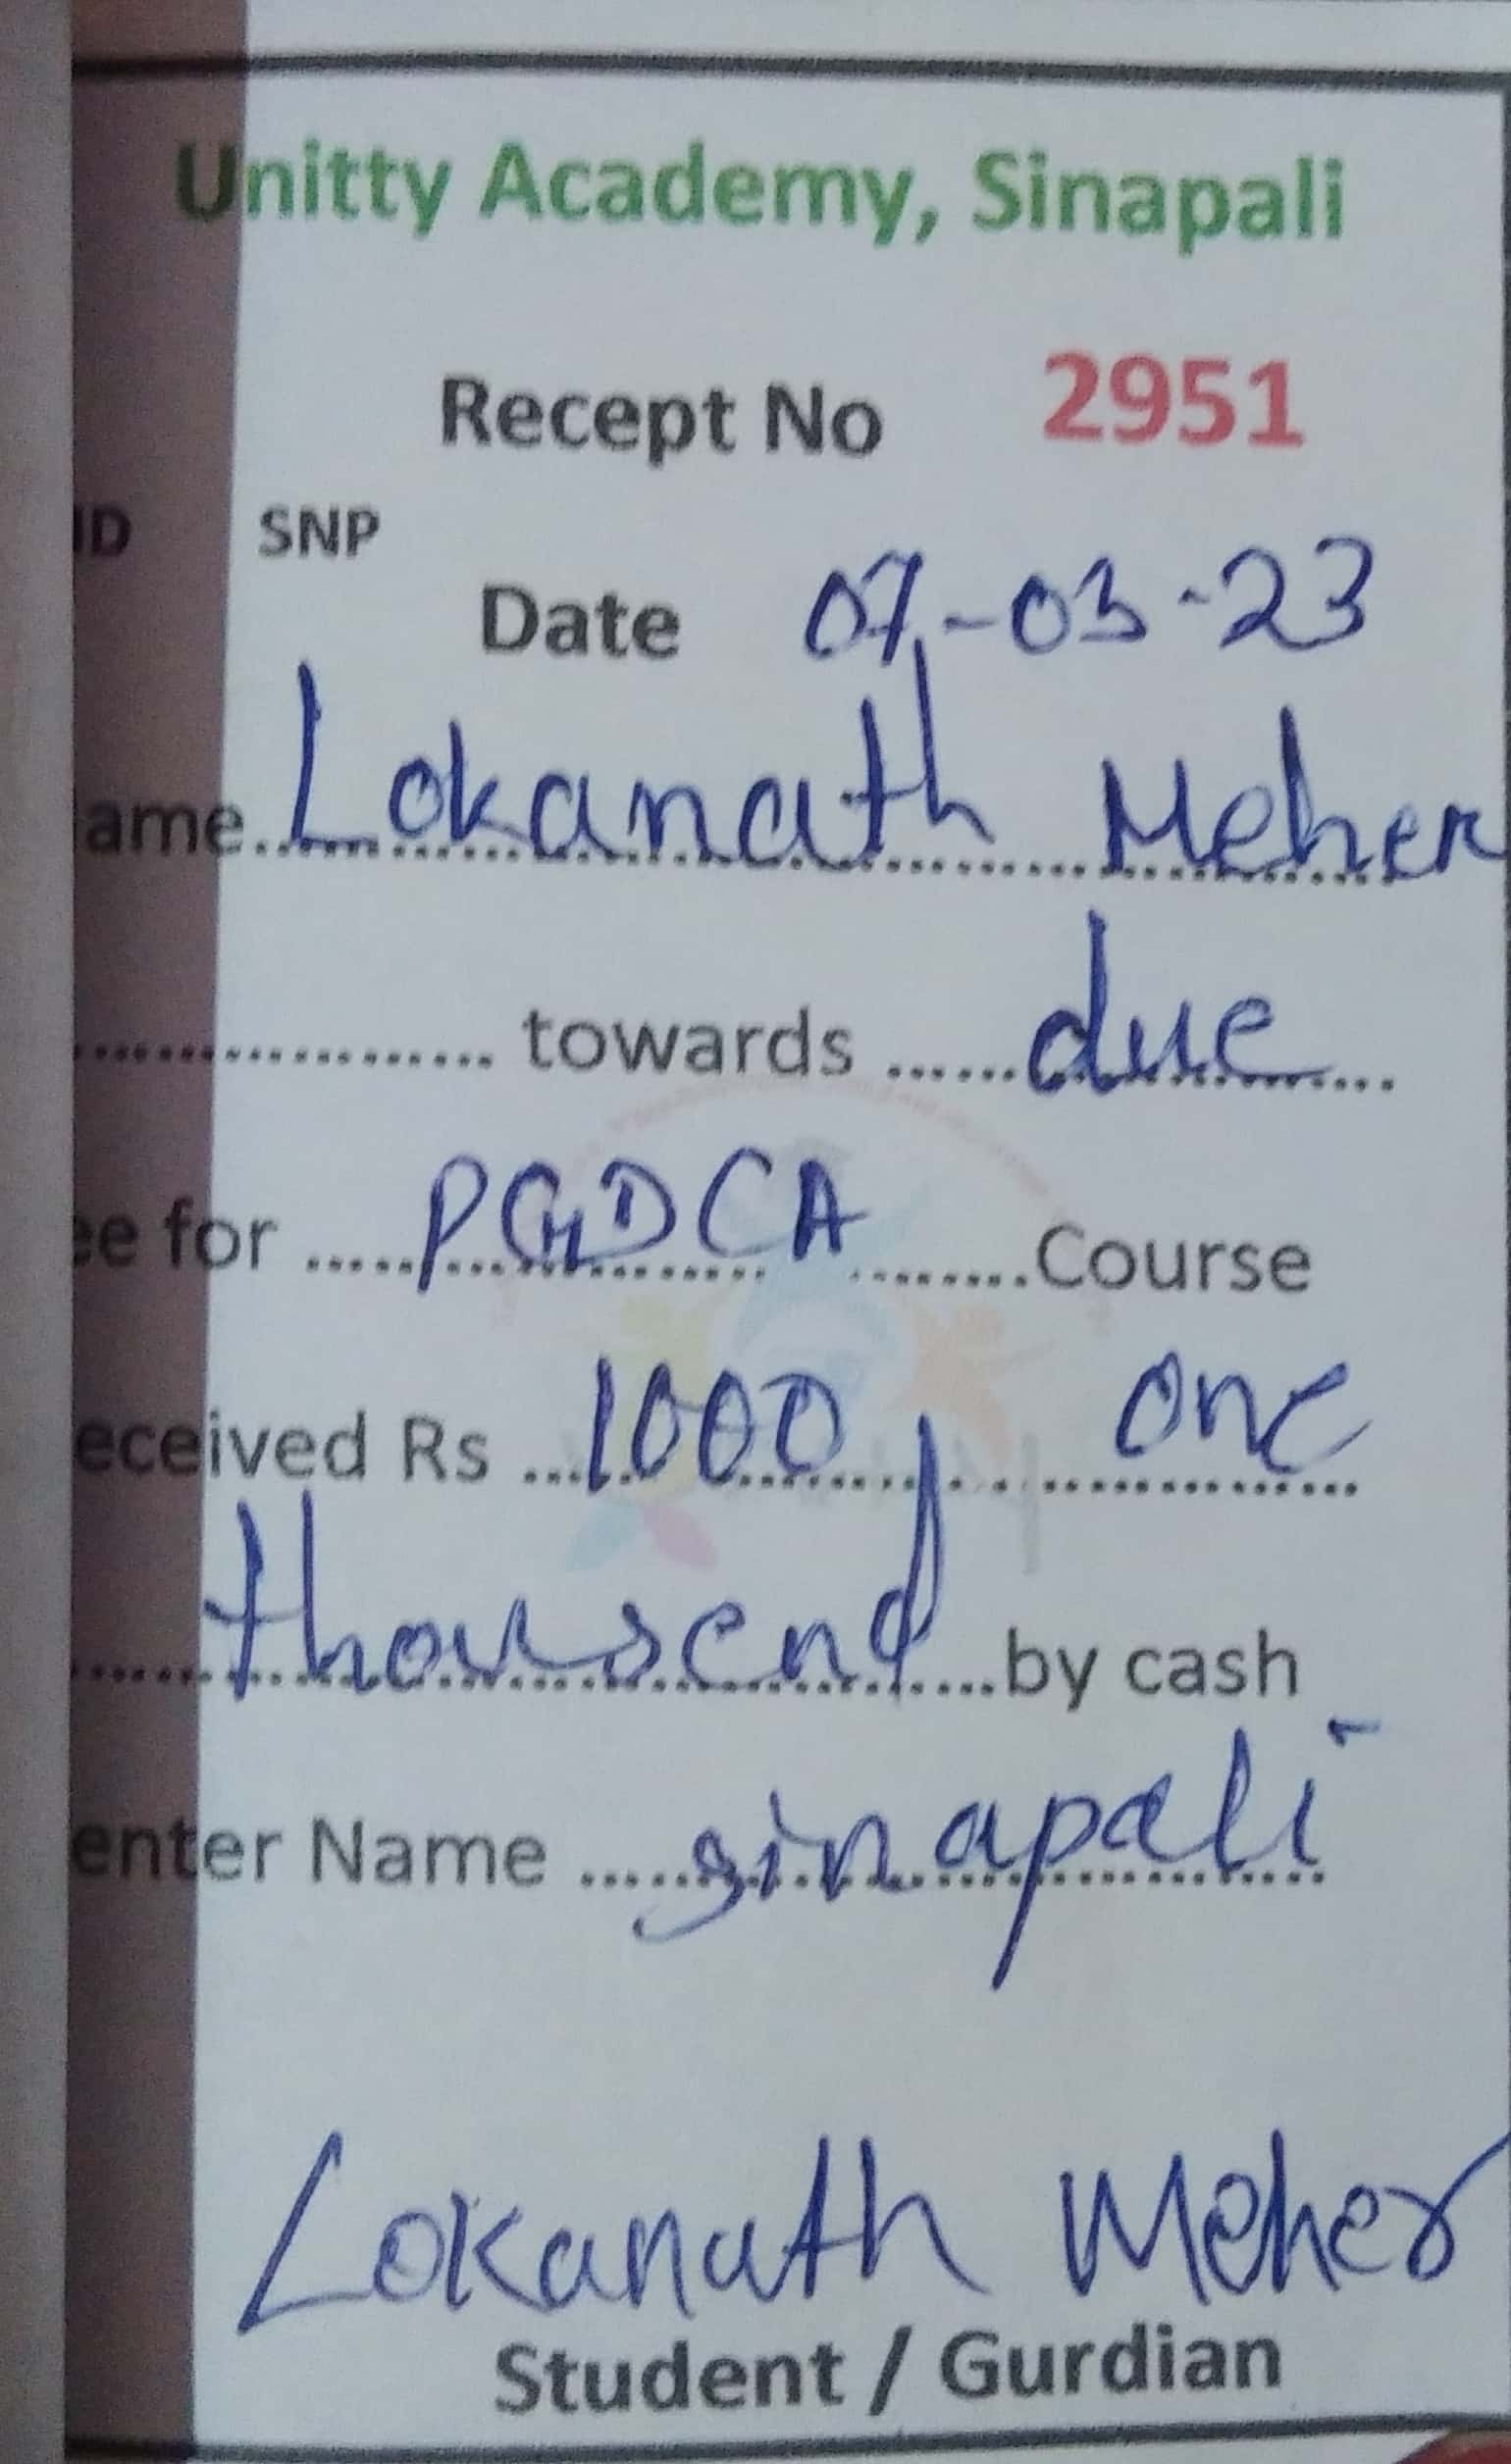 Unitty Academy, Sinapali
Recept No 2951
ID SNP
Date 07-03-23
ame..Lokanath Meher
.................... towards ......due...
ee for .....PGDCA........Course
eceived Rs ...1000, one
.....thousend...by cash
enter Name .....sinapali
Lokanath Meher
Student / Gurdian